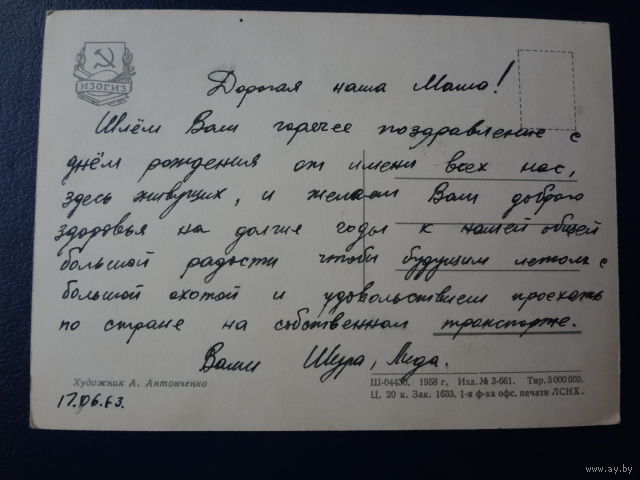 ИЗОГИЗ
Дорогая наша Маша!
Шлём Вам горячее поздравление с
днём рождения от имени всех нас,
здесь живущих, и желаем Вам доброго
здоровья на долгие годы к нашей общей
большой радости чтобы будущим летом с
большой охотой и удовольствием проехать
по стране на собственном транспорте.
Ваши Шура, Лида.
Художник А. Антонченко
17.06.63.
Ш-04430. 1958 г. Изд. № 3-661. Тир. 3 000 000.
Ц. 20 к. Зак. 1633. 1-я ф-ка офс. печати ЛСНХ.
www.ay.by